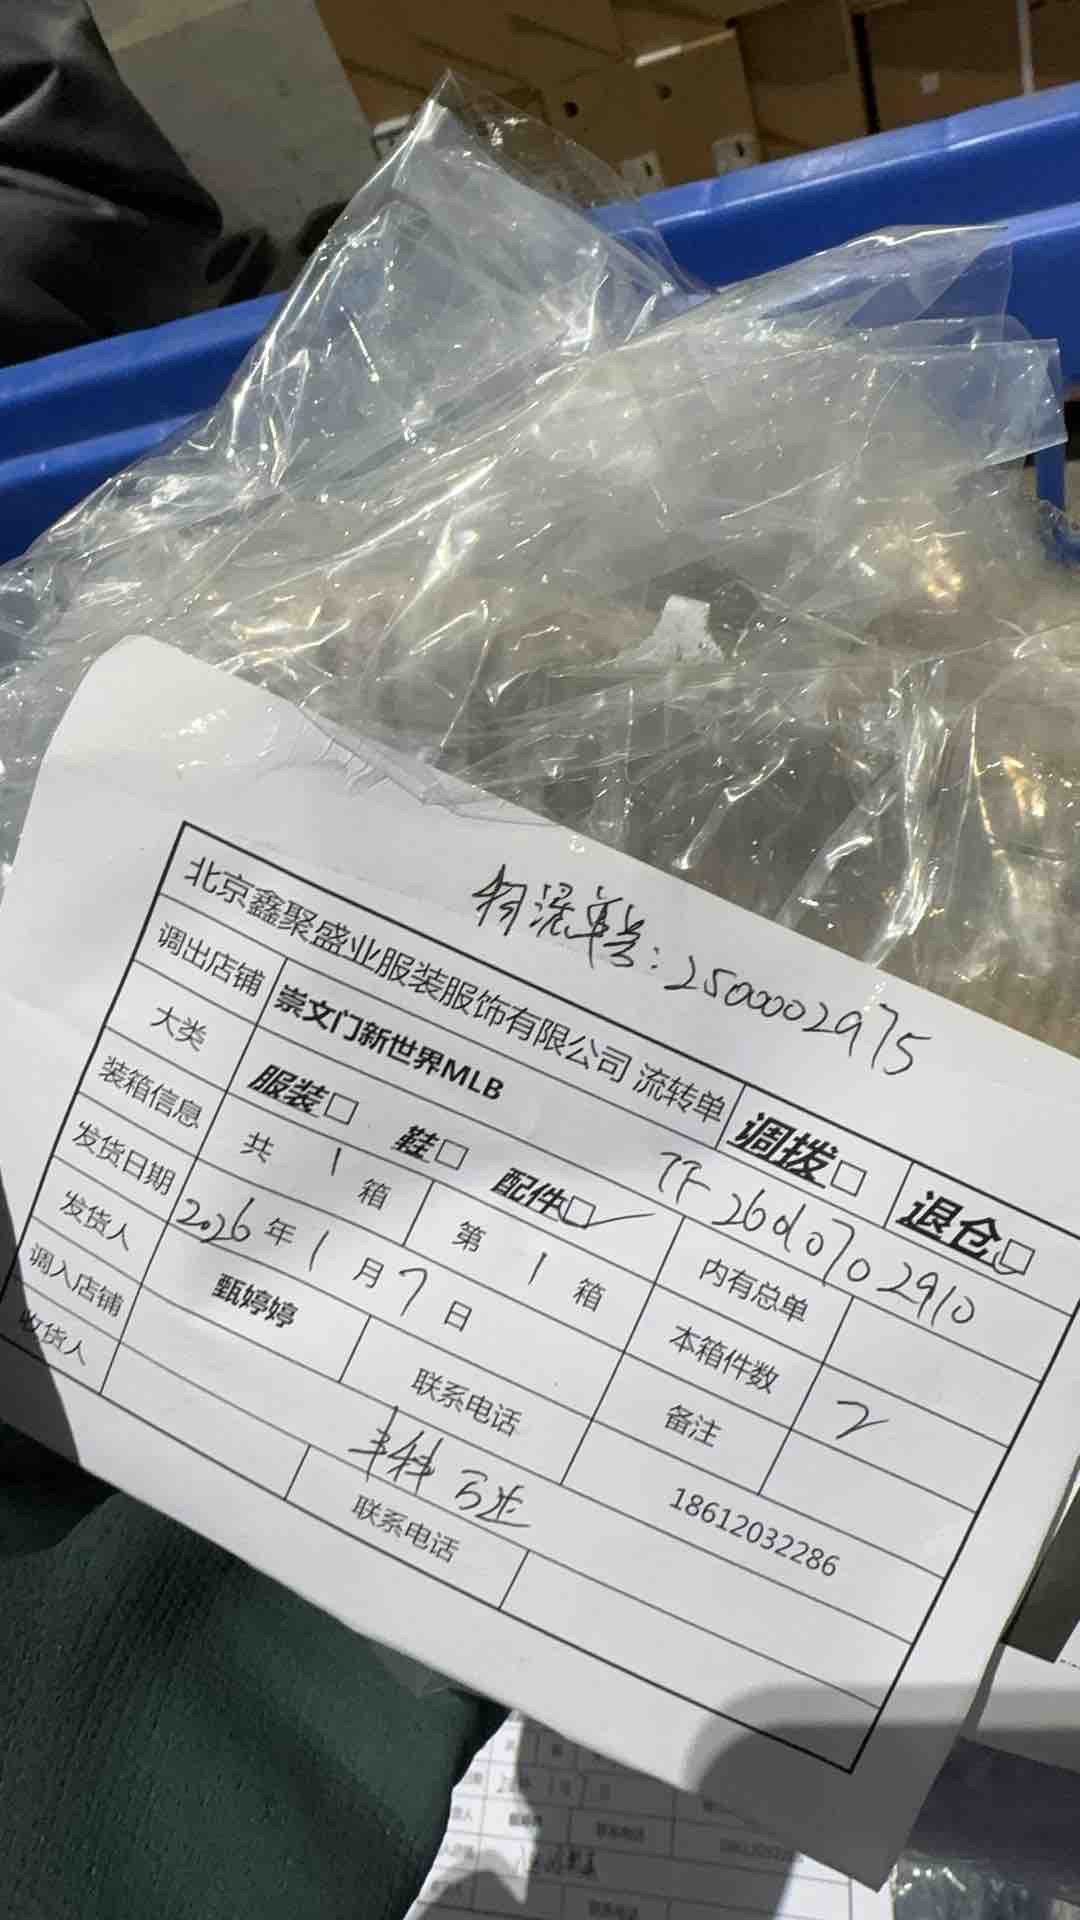 物流单号：2500002975
北京鑫聚盛业服装服饰有限公司 流转单 调拨□ 退仓□
调出店铺 崇文门新世界MLB TF26010702910
大类 服装□ 鞋□ 配件□✓ 内有总单
装箱信息 共 1 箱 第 1 箱 本箱件数 2
发货日期 2026年1月7日 备注
发货人 甄婷婷 联系电话 18612032286
调入店铺
收货人 联系电话